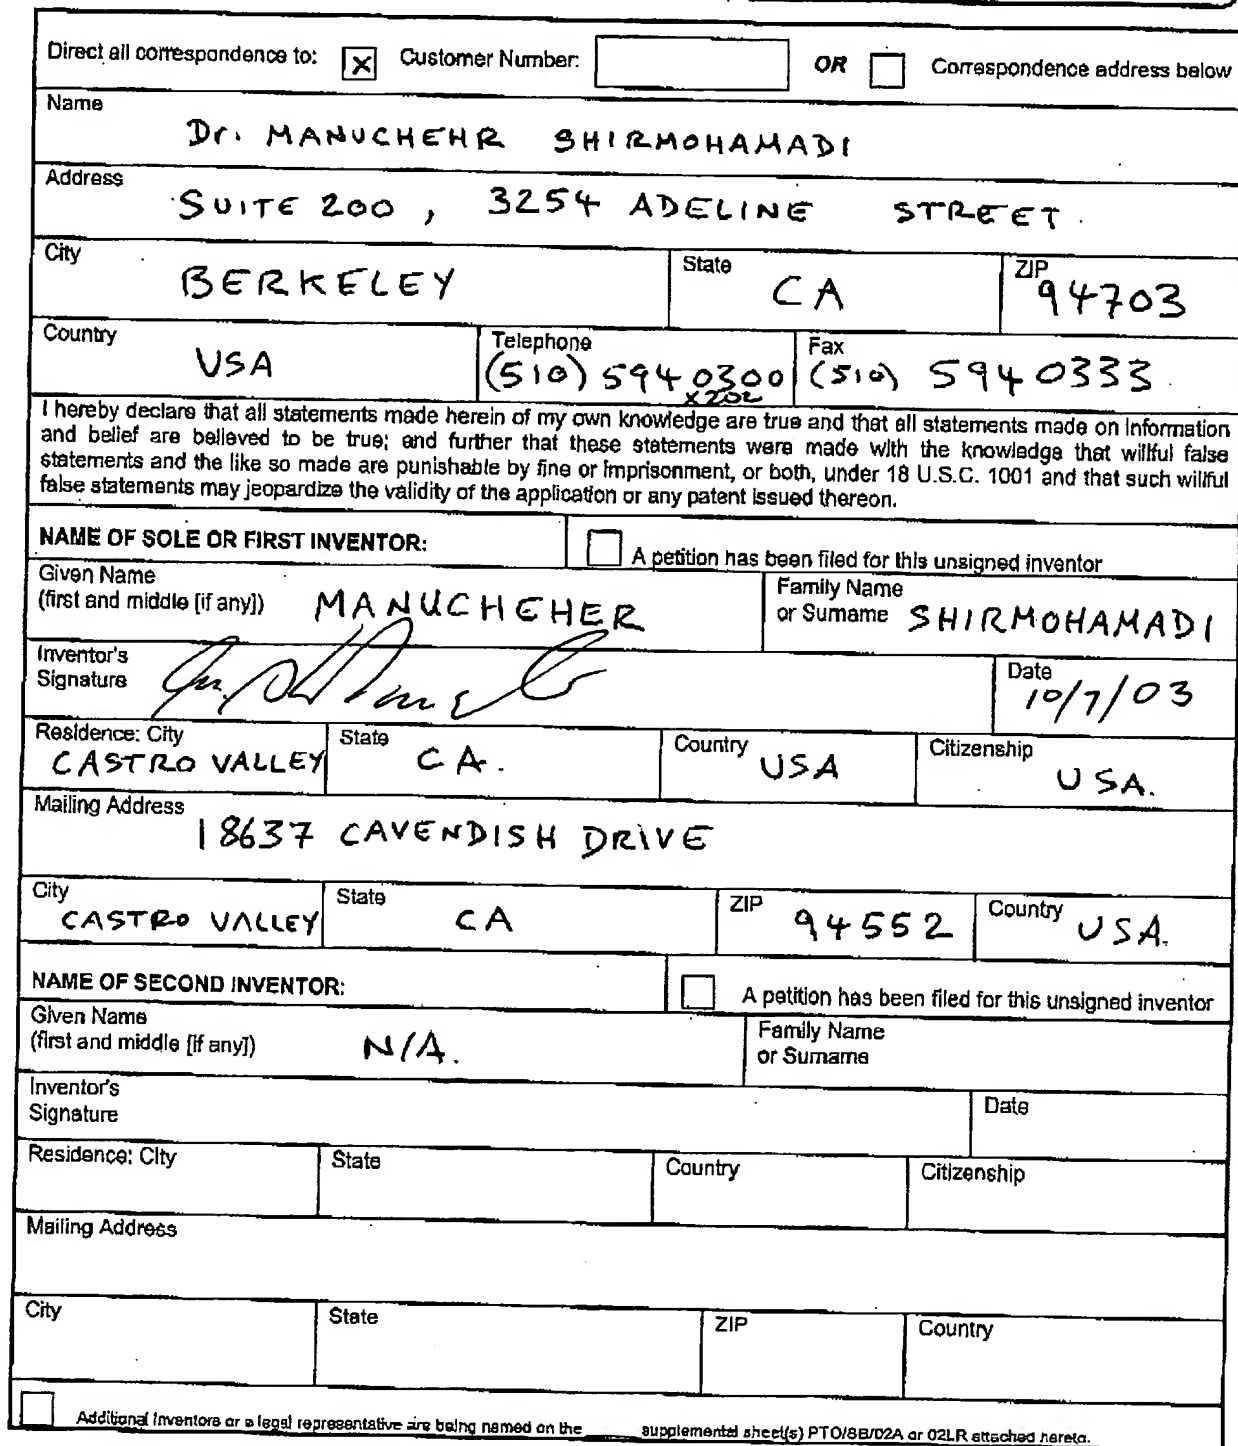 Direct all correspondence to: [x] Customer Number: OR Correspondence address below
Name
Dr. MANUCHEHR SHIRMOHAMADI
Address
SUITE 200, 3254 ADELINE STREET.
City State ZIP
BERKELEY CA 94703
Country Telephone Fax
USA (510) 594 0300 (510) 594 0333
x202
I hereby declare that all statements made herein of my own knowledge are true and that all statements made on information
and belief are believed to be true; and further that these statements were made with the knowledge that willful false
statements and the like so made are punishable by fine or imprisonment, or both, under 18 U.S.C. 1001 and that such willful
false statements may jeopardize the validity of the application or any patent issued thereon.
NAME OF SOLE OR FIRST INVENTOR: A petition has been filed for this unsigned inventor
Given Name Family Name
(first and middle [if any]) MANUCHEHER or Surname SHIRMOHAMADI
Inventor's Date
Signature 10/7/03
Residence: City State Country Citizenship
CASTRO VALLEY CA. USA USA.
Mailing Address
18637 CAVENDISH DRIVE
City State ZIP Country
CASTRO VALLEY CA 94552 USA.
NAME OF SECOND INVENTOR: A petition has been filed for this unsigned inventor
Given Name Family Name
(first and middle [if any]) N/A. or Surname
Inventor's Date
Signature
Residence: City State Country Citizenship
Mailing Address
City State ZIP Country
Additional inventors or a legal representative are being named on the ____ supplemental sheet(s) PTO/SB/02A or 02LR attached hereto.